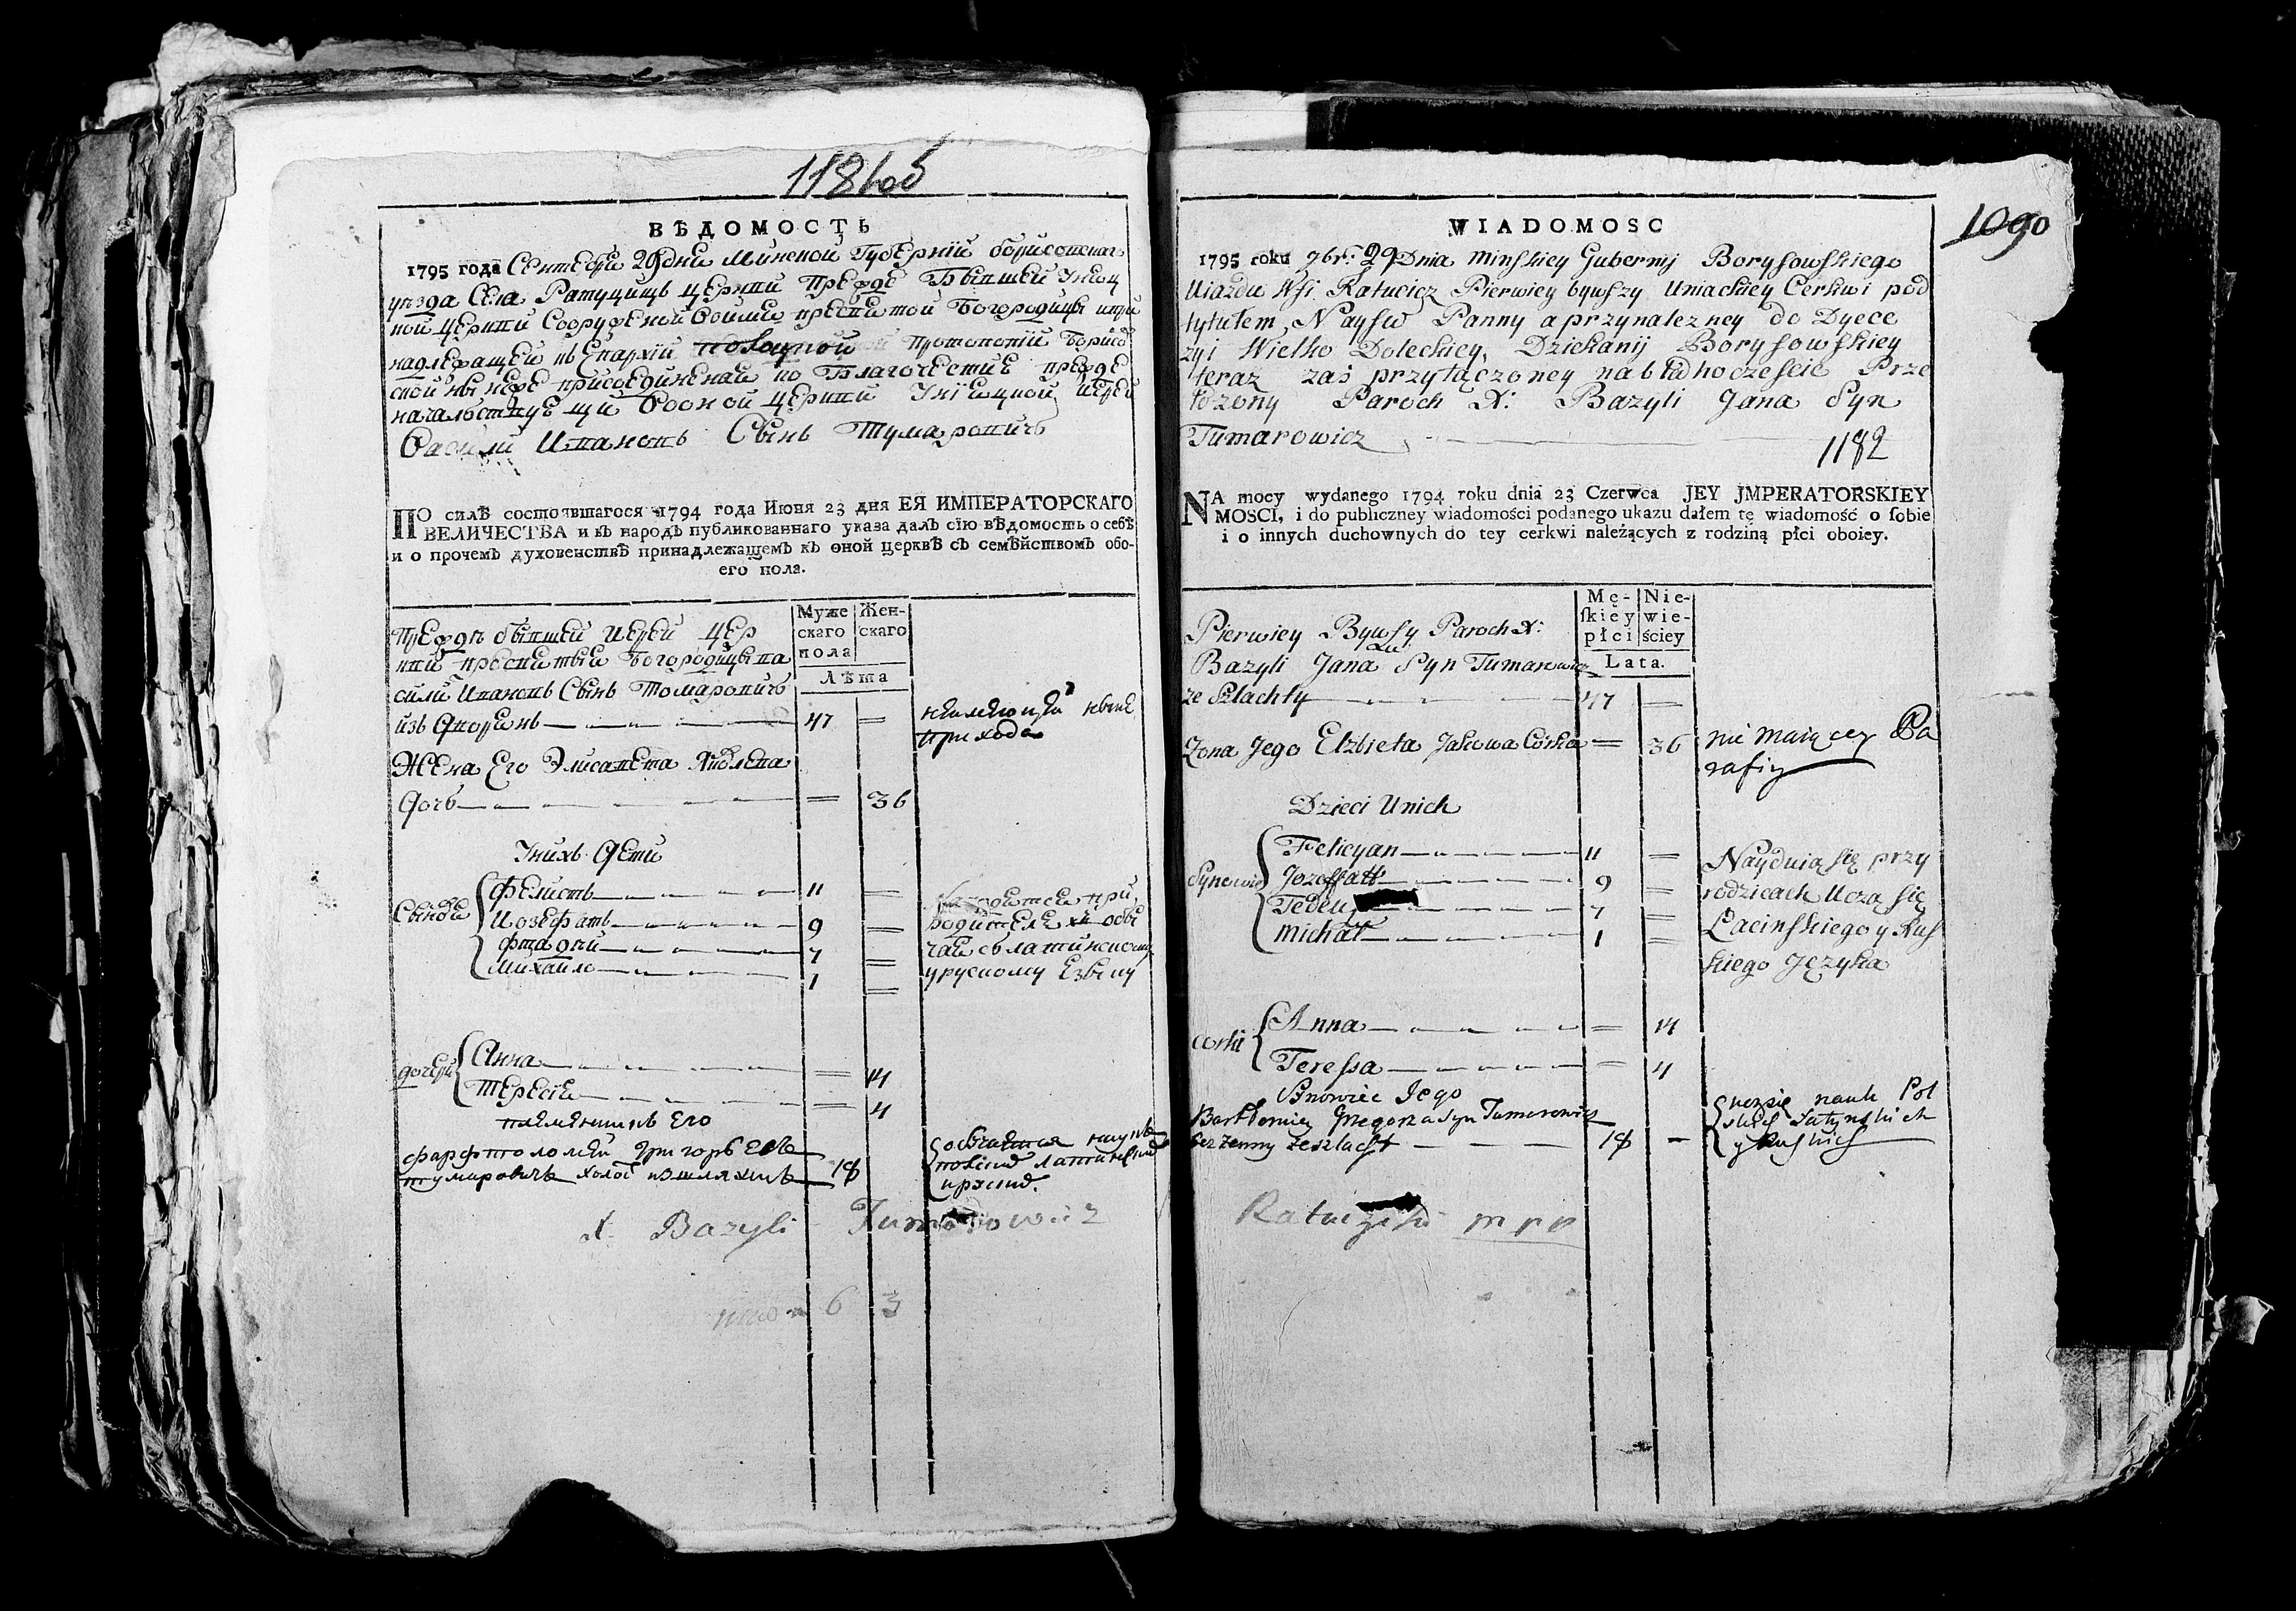 1181 об
ВѢДОМОСТЬ
1795 года Сентебри 29 дни Минскои Губернїи борисовскаг
уезда Села Ратуцицъ церкви прежде Бывшеи Унїяц
кои церкви Сооруженои воимя пресвятой Богородицы
надлежащеи къ Епархїи полоцкой Протопопїи Борисо
скои нынѣже присоединенаи ко Благочестие прежде
началствуещи Оной церкви Унїецкой Иереи
Василии Ивановъ Сынъ Тумаровичъ
ПО силѣ состоявшагося 1794 года Июня 23 дня ЕЯ ИМПЕРАТОРСКАГО
ВЕЛИЧЕСТВА и въ народъ публикованнаго указа далъ сїю вѣдомость о себѣ
и о прочемъ духовенствѣ принадлежащемъ къ оной церквѣ съ семѣйствомъ обо-
его пола.
Муже Жен-
скаго скаго
пола
Лѣта
Преждъ бывшеи Иереи цер
кви пресвитыи Богородицы ва
сили Ивановъ Сынъ Томаровичъ
изъ Дворянъ 47 =
неимеющи ныне
прихода
Жена Его Элисавета Яковлева
Дочь = 36
Унихъ Дети
Сынове
Фелистъ 11 =
Иозефатъ 9 =
Фтадей 7 =
Михайло 1 =
находитси при
родителе обу
чаисѣ латинскому
у рускому Езыку
дочери
Анна = 14
Тересїя = 4
племянникъ Его
Фарфтоломей Григоръевъ
тумаровичъ холос изшляхты 18
обучается наукъ
полскихъ латинских
ируских.
X. Bazyli Tumarowicz
итого 6 3
1090
WIADOMOSC
1795 roku 9br: 29 Dnia Minskiey Gubernij Borysowskiego
Uiazdu Wsi Ratucicz Pierwiey bywszy Uniackiey Cerkwi pod
tytułem Nayśw Panny a przynalezney do Dyece
zyi Wielko Połockiey, Dziekanij Borysowskiey
teraz zaś przyłączoney na błahoczescie Prze
łożony Paroch X: Bazyli Jana Syn
Tumarowicz
1182
NA mocy wydanego 1794 roku dnia 23 Czerwca JEY JMPERATORSKIEY
MOSCI, i do publiczney wiadomości podanego ukazu dałem tę wiadomość o sobie
i o innych duchownych do tey cerkwi należących z rodziną płci oboiey.
Mę- Nie-
skiey wie-
płci ściey
Lata.
Pierwiey Bywsy Paroch X:
Bazyli Jana Syn Tumarowicz
ze Szlachty 47 =
Zona Jego Elzbieta Jakowa Córka = 36
nie maiącey Pa
rafiy
Dzieci Unich
Synowie
Felicyan 11 =
Jozeffatt 9 =
Tedeu 7 =
Michał 1 =
Nayduią się przy
rodzicach Uczą się
Łacinskiego y Rus
kiego Języka
Corki
Anna = 14
Teressa = 4
Synowiec Jego
Bartłomiey Gregorza syn Tumarowicz
bezzenny ze szlacht 18 -
uczysię nauk Pol
skich Łatynskich
y Ruskich
Ratuzski mpp